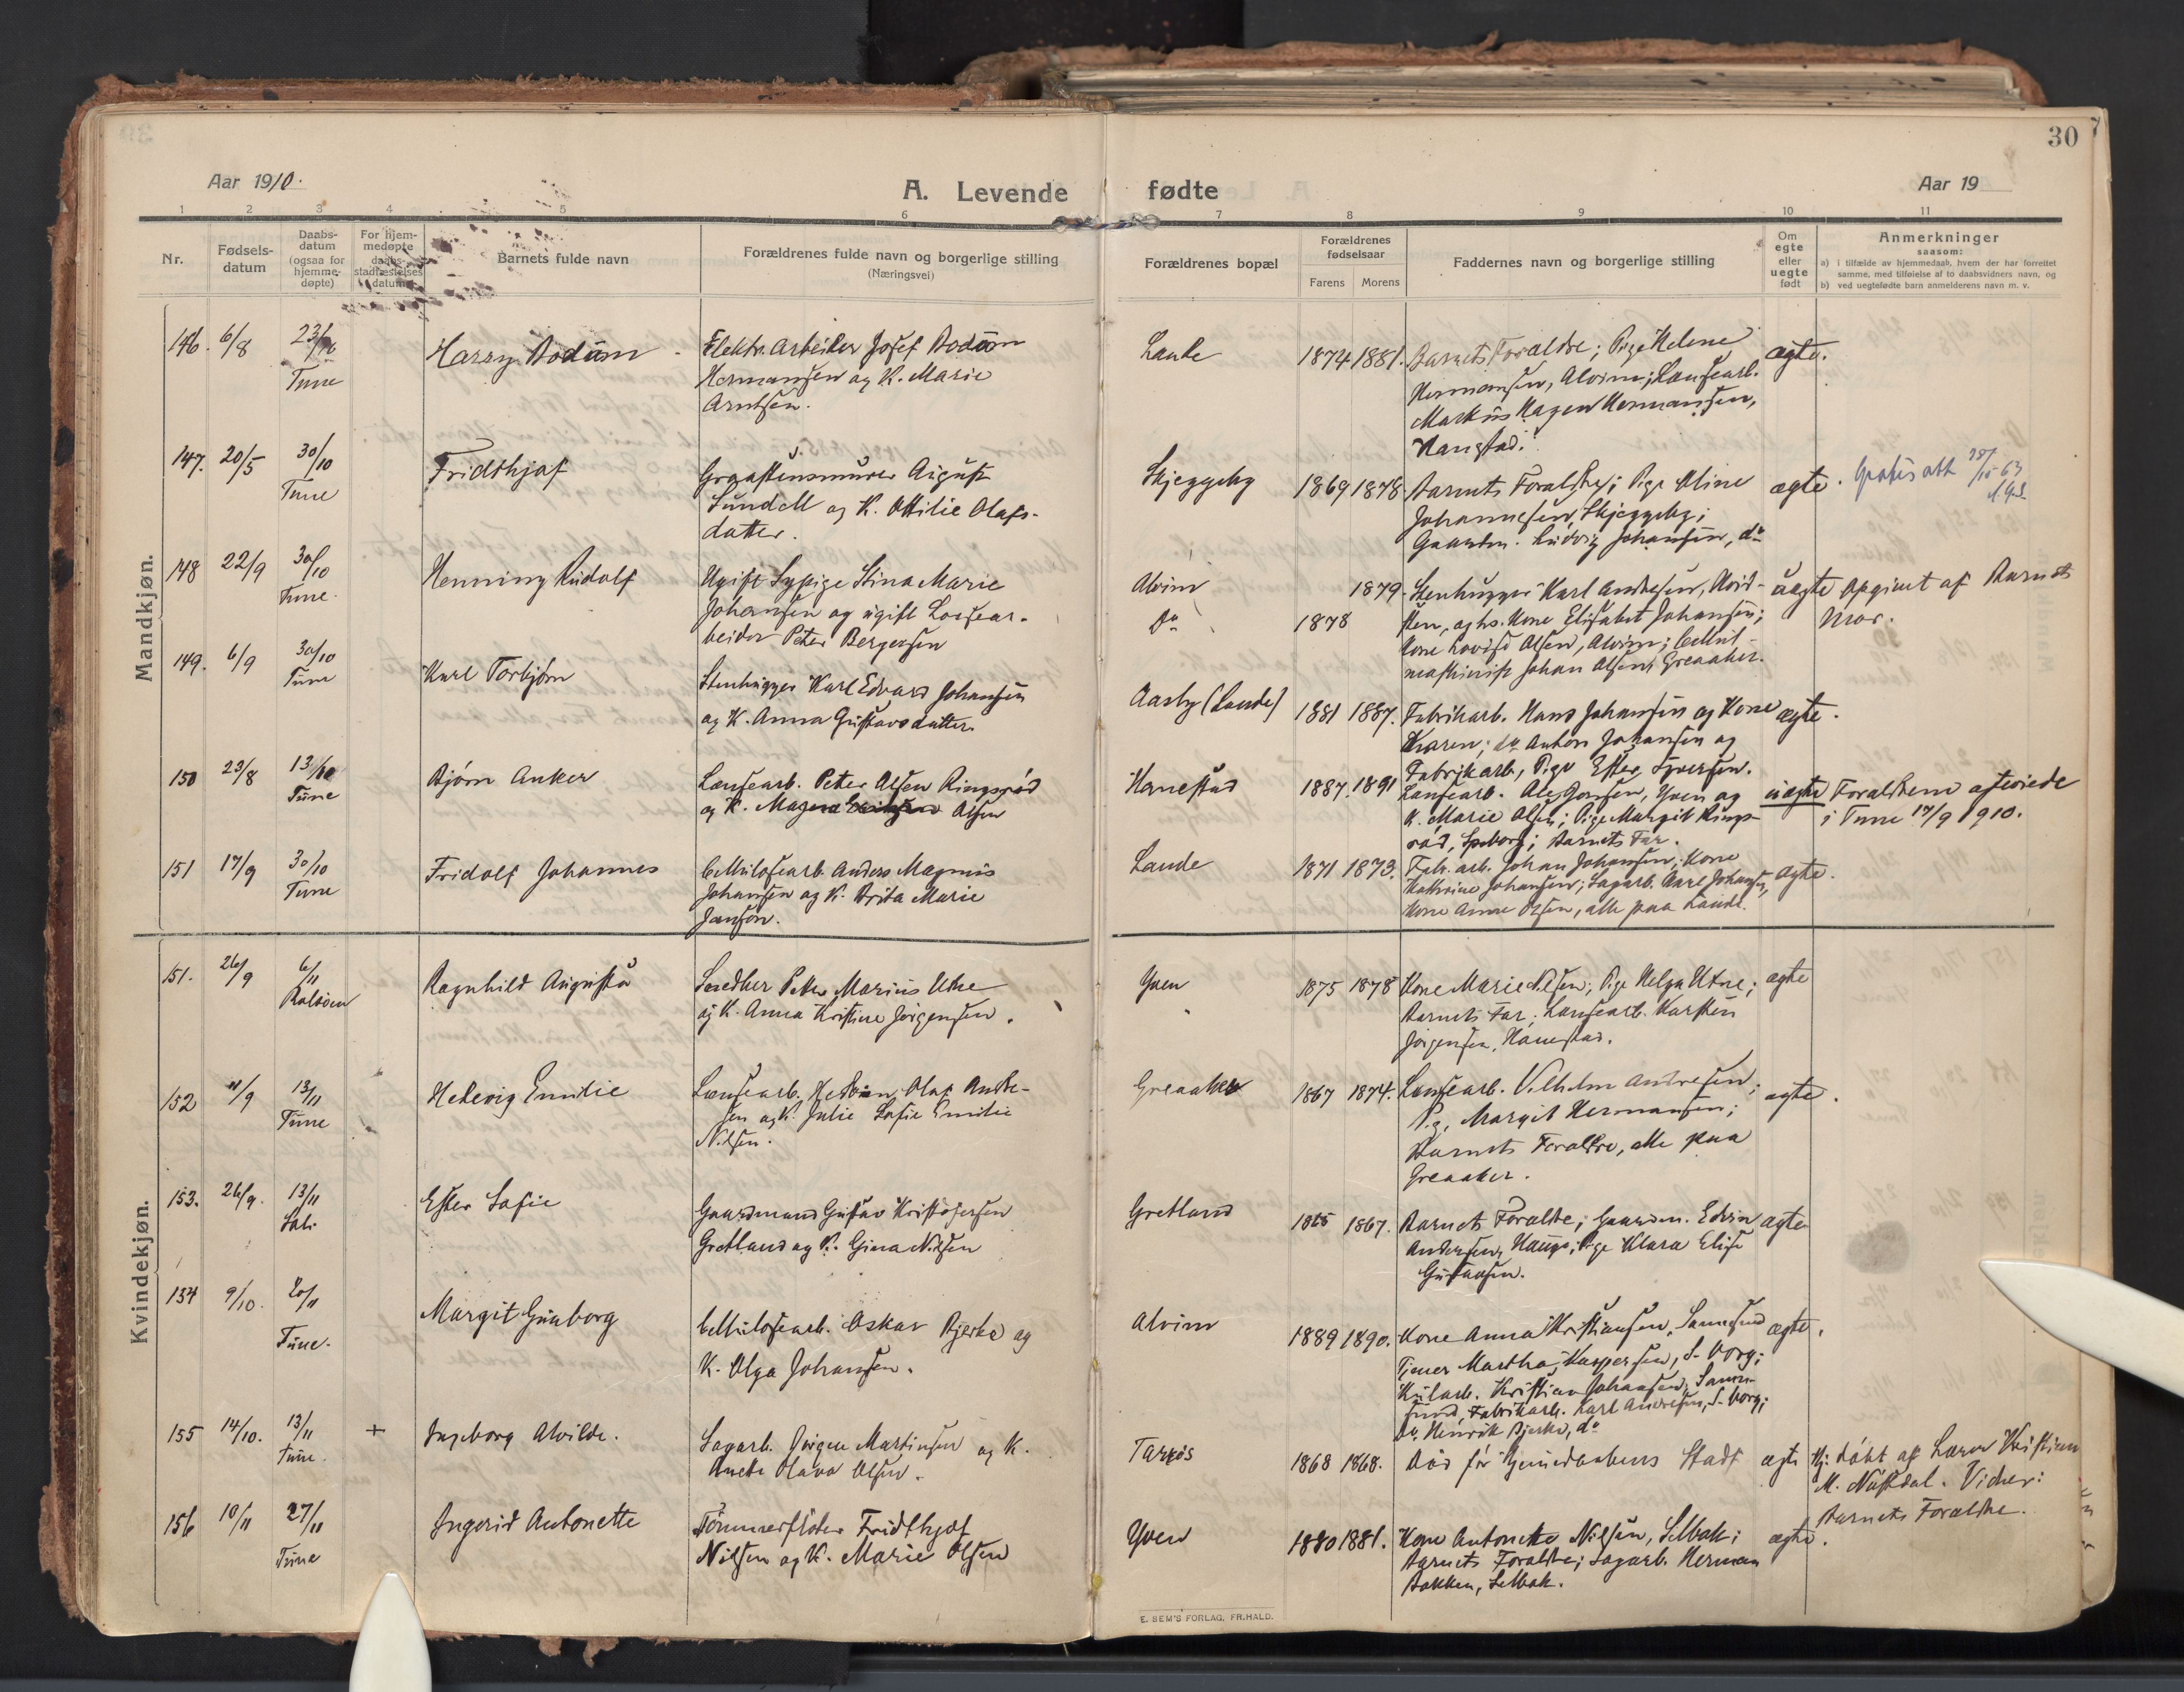 30
Aar 1910.
A. Levende fødte
Aar 19
1 2 3 4 5 6 7 8 9 10 11
Nr.
Fødsels-
datum
Daabs-
datum
(ogsaa for
hjemme-
døpte)
For hjem-
medøpte
daabs-
stadfæstelses
datum
Barnets fulde navn
Forældrenes fulde navn og borgerlige stilling
(Næringsvei)
Forældrenes bopæl
Forældrenes
fødselsaar
Farens Morens
Faddernes navn og borgerlige stilling
Om
egte
eller
uegte
født
Anmerkninger
saasom:
a) i tilfælde av hjemmedaab, hvem der har forrettet
samme, med tilføielse af to daabsvidners navn, og
b) ved uegtefødte barn anmelderens navn m. v.
Mandkjøn.
146. 6/8 23/10
Tune
Harry Bodum
Elektr. Arbeider Josef Bodum
Hermansen og K. Marie
Arntsen.
Lande
1874 1881.
Barnets Forældre; Pige Helene
Hermansen, Alvim; Lænsearb.
Markus Hagen Hermansen,
Hanestad.
ægte.
147. 20/5 30/10
Tune
Fridthjof
Graastensmurer August
Lundell og K. Ottilie Olafs-
datter.
Skjeggeby
1869 1878
Barnets Forældre; Pige Oline
Johannesen, Skjeggeby;
Gaardm. Ludvig Johansen, do
ægte.
148 22/9 30/10
Tune.
Henning Rudolf
Ugift Sypige Stina Marie
Johansen og ugift Lossear-
beider Peter Bergersen
Alvim
Do
1879.
1878
Stenhugger Karl Andresen,
Kone Elisabet Johansen;
Kone Lovise Olsen, Alvim;
Johan Olsen, Greaaker.
uægte
Opgivet af Barnets
Mor.
149. 6/9 30/10
Tune
Karl Torbjørn
Stenhugger Karl Edvard Johansen
og K. Anna Gustavsdatter
Aasly (Lande)
1881 1887.
Fabrikarb. Hans Johansen og Kone
Karen; do Anton Johansen og
Fabrikarb., Pige Ester Iversen.
ægte.
150 23/8 13/10
Tune
Bjørn Anker
Lænsearb. Peter Olsen Ringsrød
og K. Magna Olsen
Hanestad
1887. 1891
Lænsearb. Ole Jonsen, Yven og
K. Marie Olsen; Pige Margit Rings-
rød, Spsborg; Barnets Far.
uægte
Forældrene afeviede
i Tune 17/9 1910.
151 17/9 30/10
Tune
Fridolf Johannes
Cellulosearb. Anders Magnus
Johansen og K. Brita Marie
Jonson.
Lande
1871 1873.
Fabr. arb. Johan Johansen, Kone
Kathrine Johansen; Sagarb. Karl Johansen,
Kone Anne Olsen, alle paa Lande.
ægte.
Kvindekjøn.
151. 26/9 6/11
Rolvsøen
Ragnhild Augusta
Snedker Petter Marius Utne
og K. Anna Kristine Jørgensen.
Yven
1875 1878
Kone Marie Nilsen; Pige Helga Utne;
Barnets Far; Lænsearb. Karsten
Jørgensen, Hanestad.
ægte
152 11/9 13/11
Tune
Hedevig Emilie
Lænsearb. Olaf Andre-
sen og K. Julie Sofie Emilie
Nilsen.
Greaaker
1867 1874.
Lænsearb. Vilhelm Andresen;
Pg. Margit Hermansen;
Barnets Forældre, alle paa
Greaaker.
ægte.
153. 26/9. 13/11
Sol.
Ester Sofie
Gaardmand Gustav Kristofersen
Gretland og K. Gina Nilsen
Gretland
1867.
Barnets Forældre; Gaardm. Edvin
Andersen, Hauge; Pige Klara Elise
Gustavsen.
ægte
134 9/10. 20/11
Tune.
Margit Gunborg
Cellulosearb. Oskar Bjerke og
K. Olga Johansen.
Alvim
1889 1890.
Kone Anna Kristiansen, Sannesund
Tjener Martha Kaspersen, S-borg;
Kulark. Kristian Johansen, Sanne-
sund, Fabrikarb. Karl Andresen, S-borg;
Do Henrik Bjerke, do
ægte.
155 14/10. 13/11 +
Tune.
Ingeborg Alvilde.
Sagarb. Jørgen Martinsen og K.
Anette Olava Olsen.
Tarris
1868 1868.
Død før Hjemmedaabens Stadf
ægte
Hj. døbt af Lærer Kristian
M. Nustdal. Vidner:
Barnets Forældre.
156 10/11 27/11
Tune
Ingerid Antonette
Tømmerfløter Fridthjof
Nilsen og K. Marie Olsen
Yven
1880 1881.
Kone Antonette Nilsen, Selbak;
Barnets Forældre; Sagarb. Herman
Bakken, Selbak.
ægte.
E. SEM'S FORLAG, FR.HALD.